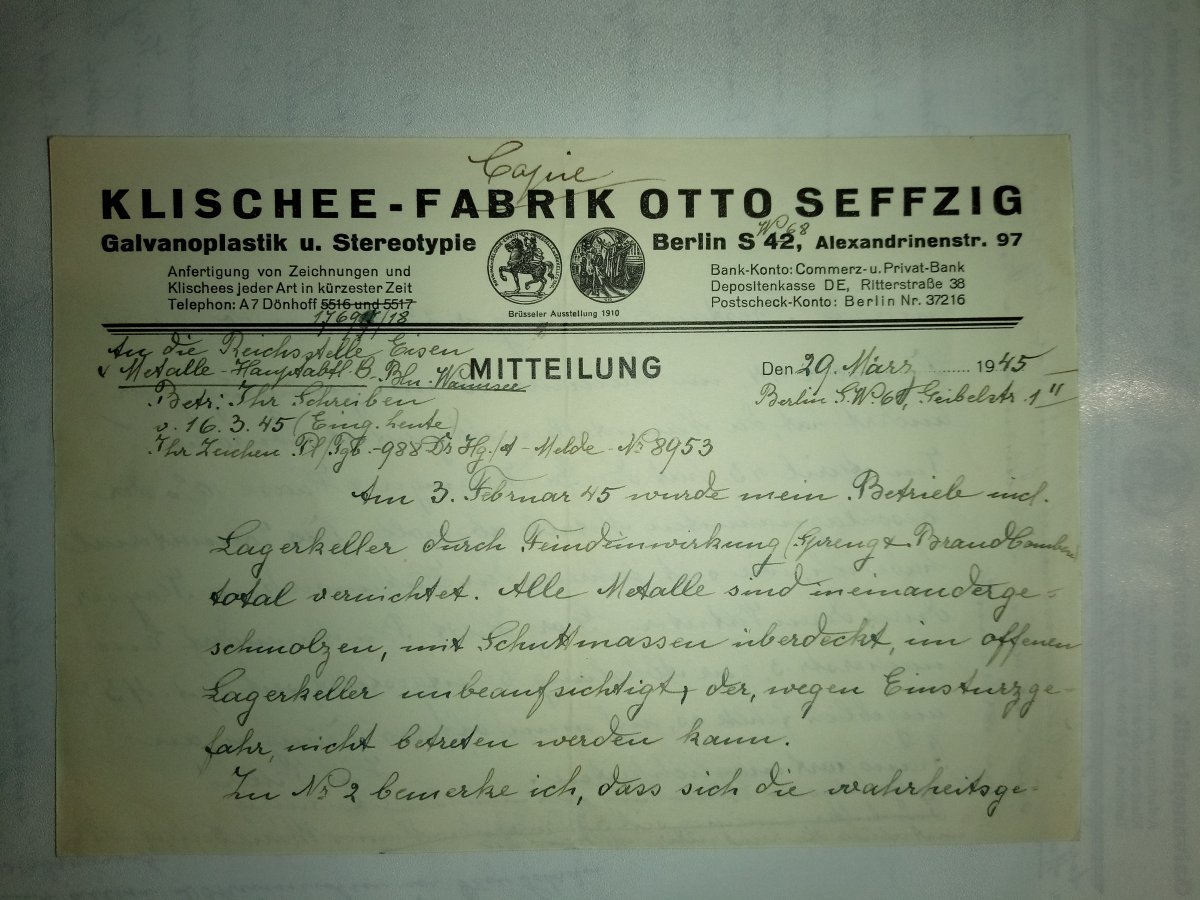 Copie
KLISCHEE-FABRIK OTTO SEFFZIG
Galvanoplastik u. Stereotypie
Berlin S 42, Alexandrinenstr. 97
W 68
Anfertigung von Zeichnungen und
Klischees jeder Art in kürzester Zeit
Telephon: A7 Dönhoff 5516 und 5517
Brüsseler Ausstellung 1910
Bank-Konto: Commerz- u. Privat-Bank
Depositenkasse DE, Ritterstraße 38
Postscheck-Konto: Berlin Nr. 37216
An die Reichsstelle Eisen
Metalle - Hauptabtl. B. Bln. Wannsee
MITTEILUNG
Den 29. März 1945
Berlin S.W. 68, Geibelstr. 1
Betr: Ihr Schreiben
v. 16.3.45 (Eing. heute)
Ihr Zeichen -988 Dr Hg./ - Melde - No 8953
Am 3. Februar 45 wurde mein Betrieb incl.
Lagerkeller durch Feindeinwirkung (Spreng & Brandbomben)
total vernichtet. Alle Metalle sind ineinanderge-
schmolzen, mit Schuttmassen überdeckt, im offenen
Lagerkeller unbeaufsichtigt, der, wegen Einsturzge-
fahr, nicht betreten werden kann.
Zu No 2 bemerke ich, dass sich die wahrheitsge-